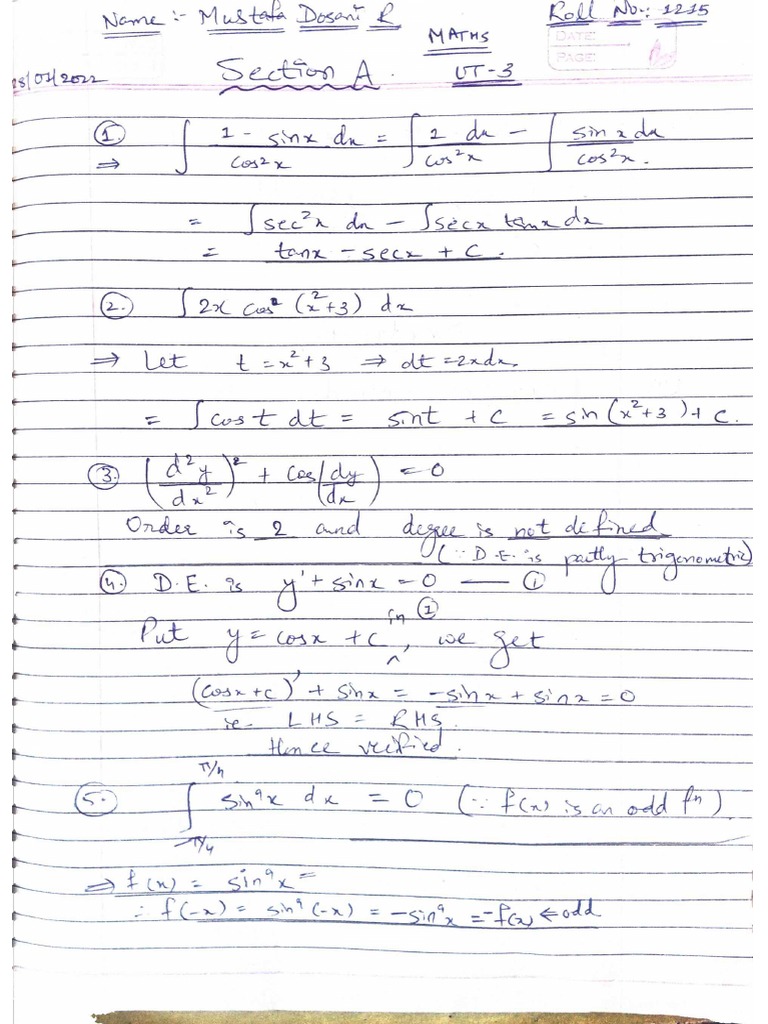 Name :- Mustafa Dosani R
Roll No.: 1215
MATHS
DATE:
PAGE:
Section A.
UT-3
① ∫ (1 - sinx)/cos²x dx = ∫ 1/cos²x dx - ∫ sinx dx/cos²x.
⇒
= ∫sec²x dx - ∫secx tanx dx
= tanx - secx + C.
② ∫ 2x cos² (x²+3) dx
⇒ Let t = x²+3 ⇒ dt = 2xdx.
= ∫ cos t dt = sint + C = sin (x²+3) + C.
③ (d²y/dx²)² + cos(dy/dx) = 0
Order is 2 and degree is not defined
(∵ D.E. is partly trigonometric)
④ D.E. is y' + sinx = 0 — ①
Put y = cosx + C in ①, we get
(cosx+C)' + sinx = -sinx + sinx = 0
ie LHS = RHS.
Hence verified.
⑤ ∫ from -π/4 to π/4 sin⁹x dx = 0 (∵ f(x) is an odd fⁿ).
⇒ f(x) = sin⁹x =
∴ f(-x) = sin⁹(-x) = -sin⁹x = -f(x) ← odd